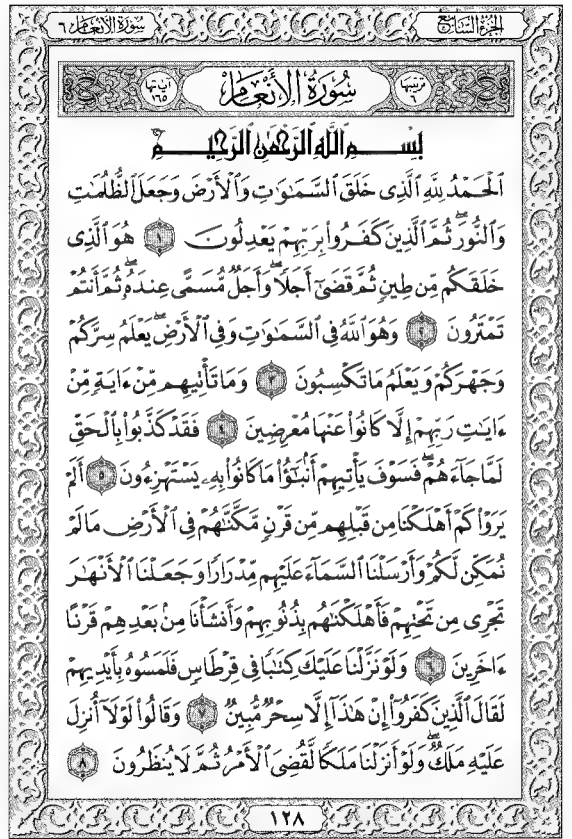 الجزء السابع
سورة الأنعام ٦
ترتيبها ٦
سُورَةُ الْأَنْعَامِ
آياتها ١٦٥
بِسْمِ اللَّهِ الرَّحْمَٰنِ الرَّحِيمِ
ٱلْحَمْدُ لِلَّهِ ٱلَّذِى خَلَقَ ٱلسَّمَٰوَٰتِ وَٱلْأَرْضَ وَجَعَلَ ٱلظُّلُمَٰتِ
وَٱلنُّورَ ۖ ثُمَّ ٱلَّذِينَ كَفَرُوا۟ بِرَبِّهِمْ يَعْدِلُونَ ١ هُوَ ٱلَّذِى
خَلَقَكُم مِّن طِينٍ ثُمَّ قَضَىٰٓ أَجَلًا ۖ وَأَجَلٌ مُّسَمًّى عِندَهُۥ ۖ ثُمَّ أَنتُمْ
تَمْتَرُونَ ٢ وَهُوَ ٱللَّهُ فِى ٱلسَّمَٰوَٰتِ وَفِى ٱلْأَرْضِ ۖ يَعْلَمُ سِرَّكُمْ
وَجَهْرَكُمْ وَيَعْلَمُ مَا تَكْسِبُونَ ٣ وَمَا تَأْتِيهِم مِّنْ ءَايَةٍ مِّنْ
ءَايَٰتِ رَبِّهِمْ إِلَّا كَانُوا۟ عَنْهَا مُعْرِضِينَ ٤ فَقَدْ كَذَّبُوا۟ بِٱلْحَقِّ
لَمَّا جَآءَهُمْ ۖ فَسَوْفَ يَأْتِيهِمْ أَنۢبَٰٓؤُا۟ مَا كَانُوا۟ بِهِۦ يَسْتَهْزِءُونَ ٥ أَلَمْ
يَرَوْا۟ كَمْ أَهْلَكْنَا مِن قَبْلِهِم مِّن قَرْنٍ مَّكَّنَّٰهُمْ فِى ٱلْأَرْضِ مَا لَمْ
نُمَكِّن لَّكُمْ وَأَرْسَلْنَا ٱلسَّمَآءَ عَلَيْهِم مِّدْرَارًا وَجَعَلْنَا ٱلْأَنْهَٰرَ
تَجْرِى مِن تَحْتِهِمْ فَأَهْلَكْنَٰهُم بِذُنُوبِهِمْ وَأَنشَأْنَا مِنۢ بَعْدِهِمْ قَرْنًا
ءَاخَرِينَ ٦ وَلَوْ نَزَّلْنَا عَلَيْكَ كِتَٰبًا فِى قِرْطَاسٍ فَلَمَسُوهُ بِأَيْدِيهِمْ
لَقَالَ ٱلَّذِينَ كَفَرُوٓا۟ إِنْ هَٰذَآ إِلَّا سِحْرٌ مُّبِينٌ ٧ وَقَالُوا۟ لَوْلَآ أُنزِلَ
عَلَيْهِ مَلَكٌ ۖ وَلَوْ أَنزَلْنَا مَلَكًا لَّقُضِىَ ٱلْأَمْرُ ثُمَّ لَا يُنظَرُونَ ٨
١٢٨